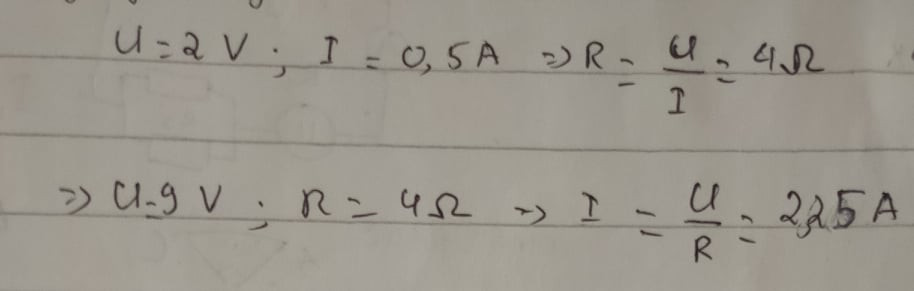 U = 2 V ; I = 0,5A => R = U/I = 4Ω
=> U = 9 V ; R = 4Ω => I = U/R = 2,25 A